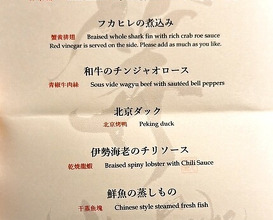 フカヒレの煮込み
蟹黄排翅 Braised whole shark fin with rich crab roe sauce
Red vinegar is served on the side. Please add as much as you like.
和牛のチンジャオロース
青椒牛肉絲 Sous vide wagyu beef with sautéed bell peppers
北京ダック
北京烤鸭 Peking duck
伊勢海老のチリソース
乾焼龍蝦 Braised spiny lobster with Chili Sauce
鮮魚の蒸しもの
干蒸魚塊 Chinese style steamed fresh fish